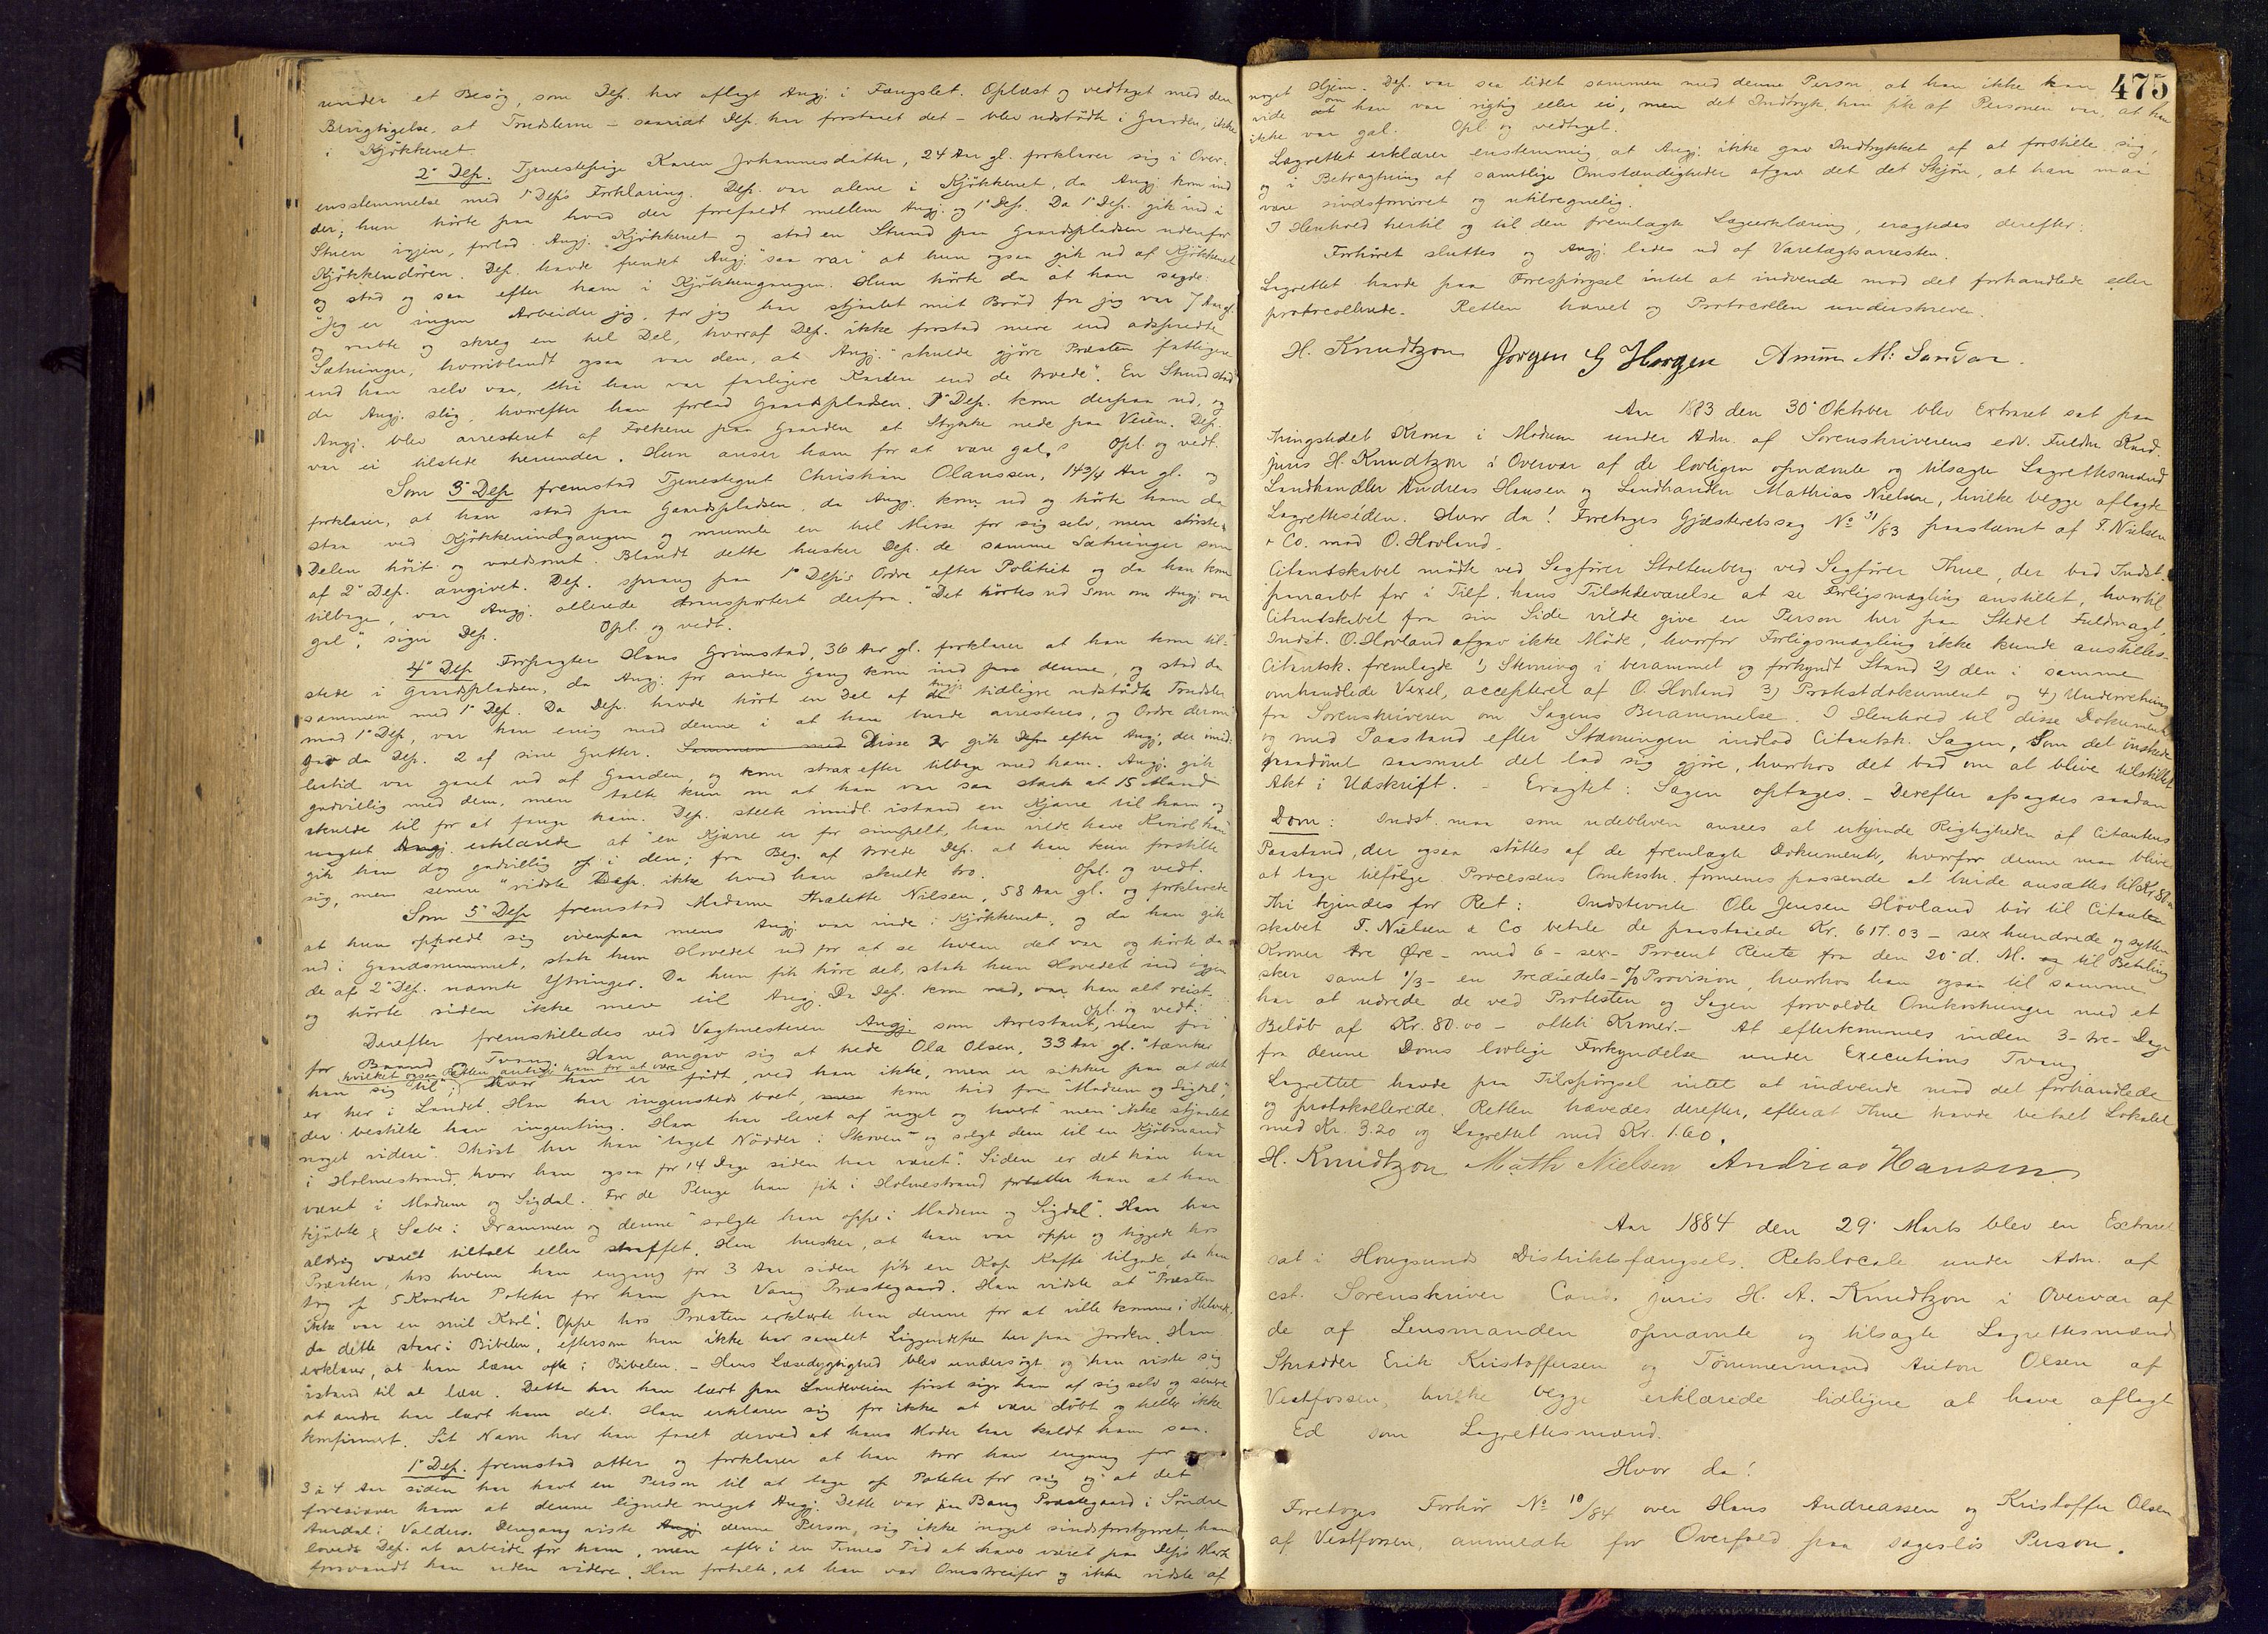 under et Besög, som Dep. har aflagt Angj. i Fængslet. Oplæst og vedtaget med den
Berigtigelse, at Trudslerne – saavidt Dep. har forstaaet det – blev udstödte i Gaarden, ikke
i Kjökkenet.
2' Dep. Tjenestepige Karen Johannesdatter, 24 Aar gl. forklarer sig i Over-
ensstemmelse med 1' Dep's Forklaring. Dep. var alene i Kjökkenet, da Angj. kom ind
der; hun hörte paa hvad der forefaldt mellem Angj. og 1' Dep. Da 1' Dep. gik ind i
Stuen igjen, forlod Angj. Kjökkenet og stod en Stund paa Gaardspladsen udenfor
Kjökkendören. Dep. havde fundet Angj. "saa rar" at hun ogsaa gik ud af Kjökkenet
og stod og saa efter ham i Kjökkengangen. Hun hörte da at han sagde:
"Jeg er ingen Arbeider jeg, for jeg har stjaalet mit Bröd fra jeg var 7 Aar gl.
og raabte og skreg en hel Del, hvoraf Dep. ikke forstod mere end adspredte
Sætninger, hvoriblandt ogsaa var den, at Angj. "skulde gjöre Præsten fattigere
end han selv var, thi han var farligere Karlen end de troede". En Stund stod
da Angj. slig, hvorefter han forlod Gaardspladsen. 1' Dep. kom derpaa ud, og
Angj. blev arresteret af Folkene paa Gaarden et Stykke nede paa Veien. Dep.
var ei tilstede herunder. Hun anser ham for at være gal. Opl. og vedt.
Som 3' Dep. fremstod Tjenestegut Christian Olaussen, 14 3/4 Aar gl. og
forklarer, at han stod paa Gaardspladsen, da Angj. kom ud og hörte ham da
staa ved Kjökkenindgangen og mumle en hel Masse for sig selv, men störste-
Delen höit og voldsomt. Blandt dette husker Dep. de samme Sætninger som
af 2' Dep. angivet. Dep. sprang paa 1' Dep's Ordre efter Politiet og da han kom
tilbage, var Angj. allerede transporteret derfra. "Det hörtes ud som om Angj. var
gal", siger Dep. Opl. og vedt.
4' Dep. Forpagter Hans Grimstad, 36 Aar gl. forklarer at han kom til-
stede i Gaardspladsen, da Angj. for anden Gang kom ind paa denne, og stod da
sammen med 1' Dep. Da Dep. havde hört en Del af Angj's tidligere udstödte Trudsler
mod 1' Dep, var han enig med denne i at han burde arresteres, og Ordre derom
gav da Dep. 2 af sine Gutter. Sammen med Disse 2 gik Dep. efter Angj, der imid-
lertid var gaaet ud af Gaarden, og kom strax efter tilbage med ham. Angj. gik
godvillig med dem, men talte kun om at han var saa stærk at 15 Mand
skulde til for at fange ham. Dep. stelte imidl. istand en Kjærre til ham og
uagtet Angj. erklærede at "en Kjærre er for simpelt, han vilde have Kariol", han
gik han dog godvillig op i den; fra Beg. af troede Dep. at han kun forstilte
sig, men senere "vidste Dep. ikke hvad han skulde tro. Opl. og vedt.
Som 5' Dep. fremstod Madame Nilsen, 58 Aar gl. og forklarede
at hun opholdt sig ovenpaa mens Angj. var inde i Kjökkenet, og da han gik
ud i Gaardsrummet, stak hun Hovedet ud for at se hvem det var og hörte da
de af 2' Dep. nævnte Ytringer. Da hun fik höre det, stak hun Hovedet ind igjen
og hörte siden ikke mere til Angj. Da Dep. kom ned, var han alt reist.
Opl. og vedt.
Derefter fremstilledes ved Vagtmesteren Angj. som Arrestant, men fri
for Baand og Tvang. Han angav sig at hede Ola Olsen, 33 Aar gl. "tænker
hvilket ogsaa Retten antog ham for at være
han sig til"; Hvor han er födt, ved han ikke, men er sikker paa at det
er her i Landet. Han har ingensteds boet, kom hid fra "Modum og Sigdal",
der bestilte han ingenting. Han har levet af "noget og hvert" men "ikke stjaalet
noget videre". I höst har han "taget Nödder i Skoven" og solgt dem til en Kjöbmand
i Holmestrand, hvor han ogsaa for 14 Dage siden har været". Siden er det han har
været i Modum og Sigdal. For de Penge han fik i Holmestrand fortæller han at han
kjöbte Sæbe i Drammen og denne "solgte han oppe i Modum og Sigdal". Han har
aldrig været tiltalt eller straffet. Han husker, at han var oppe og tiggede hos
Præsten, hos hvem han engang for 3 Aar siden fik en Kop Kaffe tilgode, da han
tog op 5 Kvarter Poteter for ham paa Vang Præstegaard. Han vidste at "Præsten
ikke var en snil Karl". Oppe hos Præsten erklærte han denne for at ville komme i Helvede,
da dette staar i Bibelen, eftersom han ikke har samlet Liggendefæ her paa Jorden. Han
erklærer, at han læser ofte i Bibelen. – Hans Læsedygtighed blev undersögt og han viste sig
istand til at læse. Dette har han lært paa Landeveien först siger han af sig selv og senere
at andre har lært ham det. Han erklærer sig for ikke at være döbt og heller ikke
konfirmeret. Sit Navn har han faaet derved at hans Moder har kaldt ham saa.
1' Dep. fremstod atter og forklarer at han tror han engang for
3 à 4 Aar siden har havt en Person til at tage op Poteter for sig og at det
forekommer ham at denne lignede meget Angj. Dette var paa Bang Præstegaard i Söndre
Aurdal i Valders. Dengang viste Angj. denne Person sig ikke noget sindsforstyrret, han
lovede Dep. at arbeide for ham, men efter i en Times Tid at have været paa Dep's Mark
forsvandt han uden videre. Han fortalte, at han var Omstreifer og ikke vidste af
475
noget Hjem. Dep. var saa lidet sammen med denne Person at han ikke kan
vide om han var rigtig eller ei, men det Indtryk, han fik af Personen var, at han
ikke var gal. Opl. og vedtaget.
Lagrettet erklærer enstemmig, at Angj. ikke gav Indtrykket af at forstille sig,
og i Betragtning af samtlige Omstændigheder afgav det det Skjön, at han maa
være sindsforvirret og utilregnelig.
I Henhold hertil og til den fremlagte Lægeerklæring, eragtedes derefter:
Forhöret sluttes og Angj. lades ud af Varetægtsarresten.
Lagrettet havde paa Forespörgsel intet at indvende mod det forhandlede eller
protocollerede. Retten hævet og Protocollen underskreven.
H. Knudtzon Jørgen G Horgen Amun M: Sandar.
Aar 1883 den 30' Oktober blev Extraret sat paa
Thingstedet Krona i Modum under Adm. af Sorenskriverens edv. Fuldm. Kand.
juris H. Knudtzon i Overvær af de lovligen opnævnte og tilsagte Lagrettesmænd
Landhandler Andreas Hansen og Landhandler Mathias Nielsen, hvilke begge aflagde
Lagretteseden. Hvor da! Foretoges Gjæsteretssag No 31/83 paastævnt af F. Nielsen
& Co. mod O. Hovland.
Citantskabet mödte ved Sagförer Stoltenberg ved Sagförer Thue, der bad Indst.
paaraabt for i Tilf. hans Tilstedeværelse at se Forligsmægling anstillet, hvortil
Citantskabet fra sin Side vilde give en Person her paa Stedet Fuldmagt.
Indst. O. Hovland afgav ikke Möde, hvorfor Forligsmægling ikke kunde anstilles.
Citantsk. fremlagde 1) Stevning i berammet og forkyndt Stand 2) den i samme
omhandlede Vexel, accepteret af O. Hovland 3) Protestdokument og 4) Underretning
fra Sorenskriveren om Sagens Berammelse. I Henhold til disse Dokumenter
og med Paastand efter Stævningen indlod Citantsk. Sagen, Som det önskede
paadömt saasnart det lod sig gjöre, hvorhos det bad om at blive tilstillet
Akt i Udskrift. – Eragtet: Sagen optages. – Derefter afsagdes saadan
Dom: Indst. maa som udebleven ansees at erkjende Rigtigheden af Citantens
Paastand, der ogsaa stöttes af de fremlagte Dokumenter, hvorfor denne maa blive
at tage tilfölge. Processens Omkostn. formenes passende at burde ansættes til Kr. 80.00
Thi kjendes for Ret: Indstevnte Ole Jensen Hovland bör til Citant-
skabet F. Nielsen & Co betale de paastaaede Kr. 617.03 – sex hundrede og sytten
Kroner tre Øre – med 6 – sex – Procent Rente fra den 20' d. M. og til Betaling
sker samt 1/3 – en trediedels – % Provision, hvorhos han ogsaa til samme
har at udrede de ved Protesten og Sagen forvoldte Omkostninger med et
Belöb af Kr. 80.00 – otteti Kroner. – At efterkommes inden 3 – tre – Dage
fra denne Doms lovlige Forkyndelse under Executions Tvang.
Lagrettet havde paa Tilspörgsel intet at indvende mod det forhandlede
og protokollerede. Retten hævedes derefter, efterat Thue havde betalt Lokalet
med Kr. 3.20 og Lagrettet med Kr. 1.60.
H. Knudtzon Math Nielsen Andreas Hansen
Aar 1884 den 29' Marts blev en Extraret
sat i Hougsunds Distriktsfængsels Retslocale under Adm. af
cst. Sorenskriver Cand. juris H. A. Knudtzon i Overvær af
de af Lensmanden opnævnte og tilsagte Lagrettesmænd
Skrædder Erik Kristoffersen og Tömmermand Anton Olsen af
Vestfossen, hvilke begge erklærede tidligere at have aflagt
Ed som Lagrettesmænd.
Hvor da!
Foretoges Forhör No 10/84 over Hans Andreassen og Kristoffer Olsen
af Vestfossen, anmeldte for Overfald paa sagesløs Person.